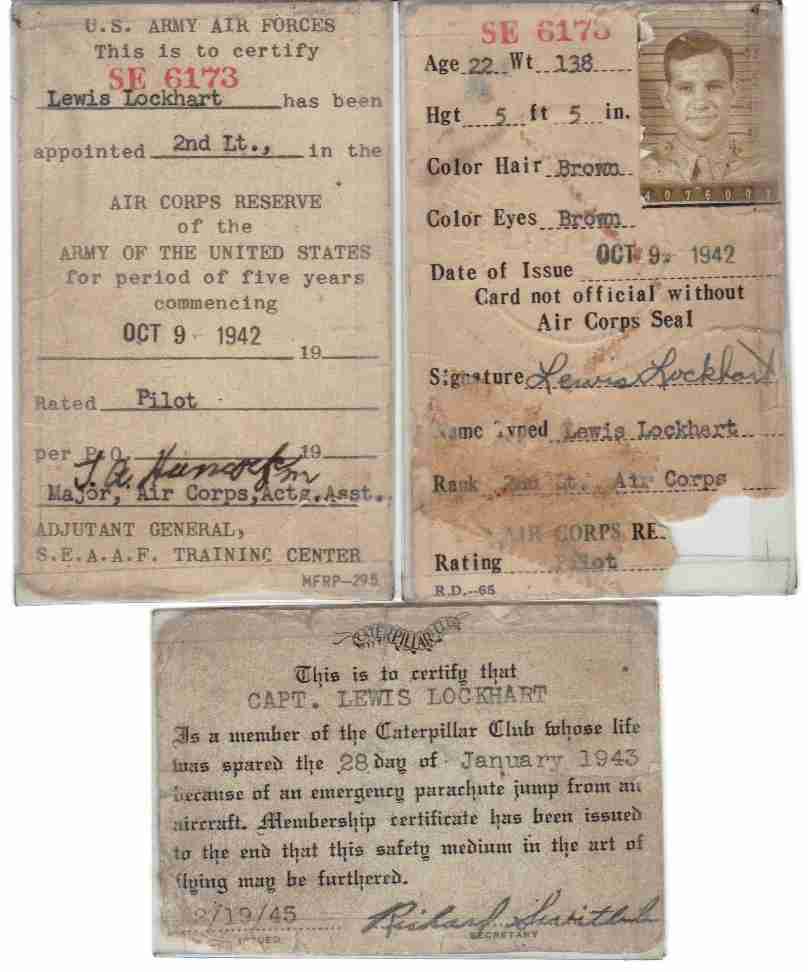 U.S. ARMY AIR FORCES
This is to certify
SE 6173
Lewis Lockhart has been
appointed 2nd Lt., in the
AIR CORPS RESERVE
of the
ARMY OF THE UNITED STATES
for period of five years
commencing
OCT 9 1942
19
Rated Pilot
per P.O. 19
Major, Air Corps, Actg. Asst.
ADJUTANT GENERAL,
S.E.A.A.F. TRAINING CENTER
MFRP-295
SE 6173
Age 22 Wt 138
Hgt 5 ft 5 in.
Color Hair Brown
Color Eyes Brown
Date of Issue OCT 9 1942
Card not official without
Air Corps Seal
Signature Lewis Lockhart
Name Typed Lewis Lockhart
Rank 2nd Lt. Air Corps
AIR CORPS RE
Rating Pilot
R.D.-65
CATERPILLAR CLUB
This is to certify that
CAPT. LEWIS LOCKHART
Is a member of the Caterpillar Club whose life
was spared the 28 day of January 1943
because of an emergency parachute jump from an
aircraft. Membership certificate has been issued
to the end that this safety medium in the art of
flying may be furthered.
2/19/45 Richard
ISSUED SECRETARY